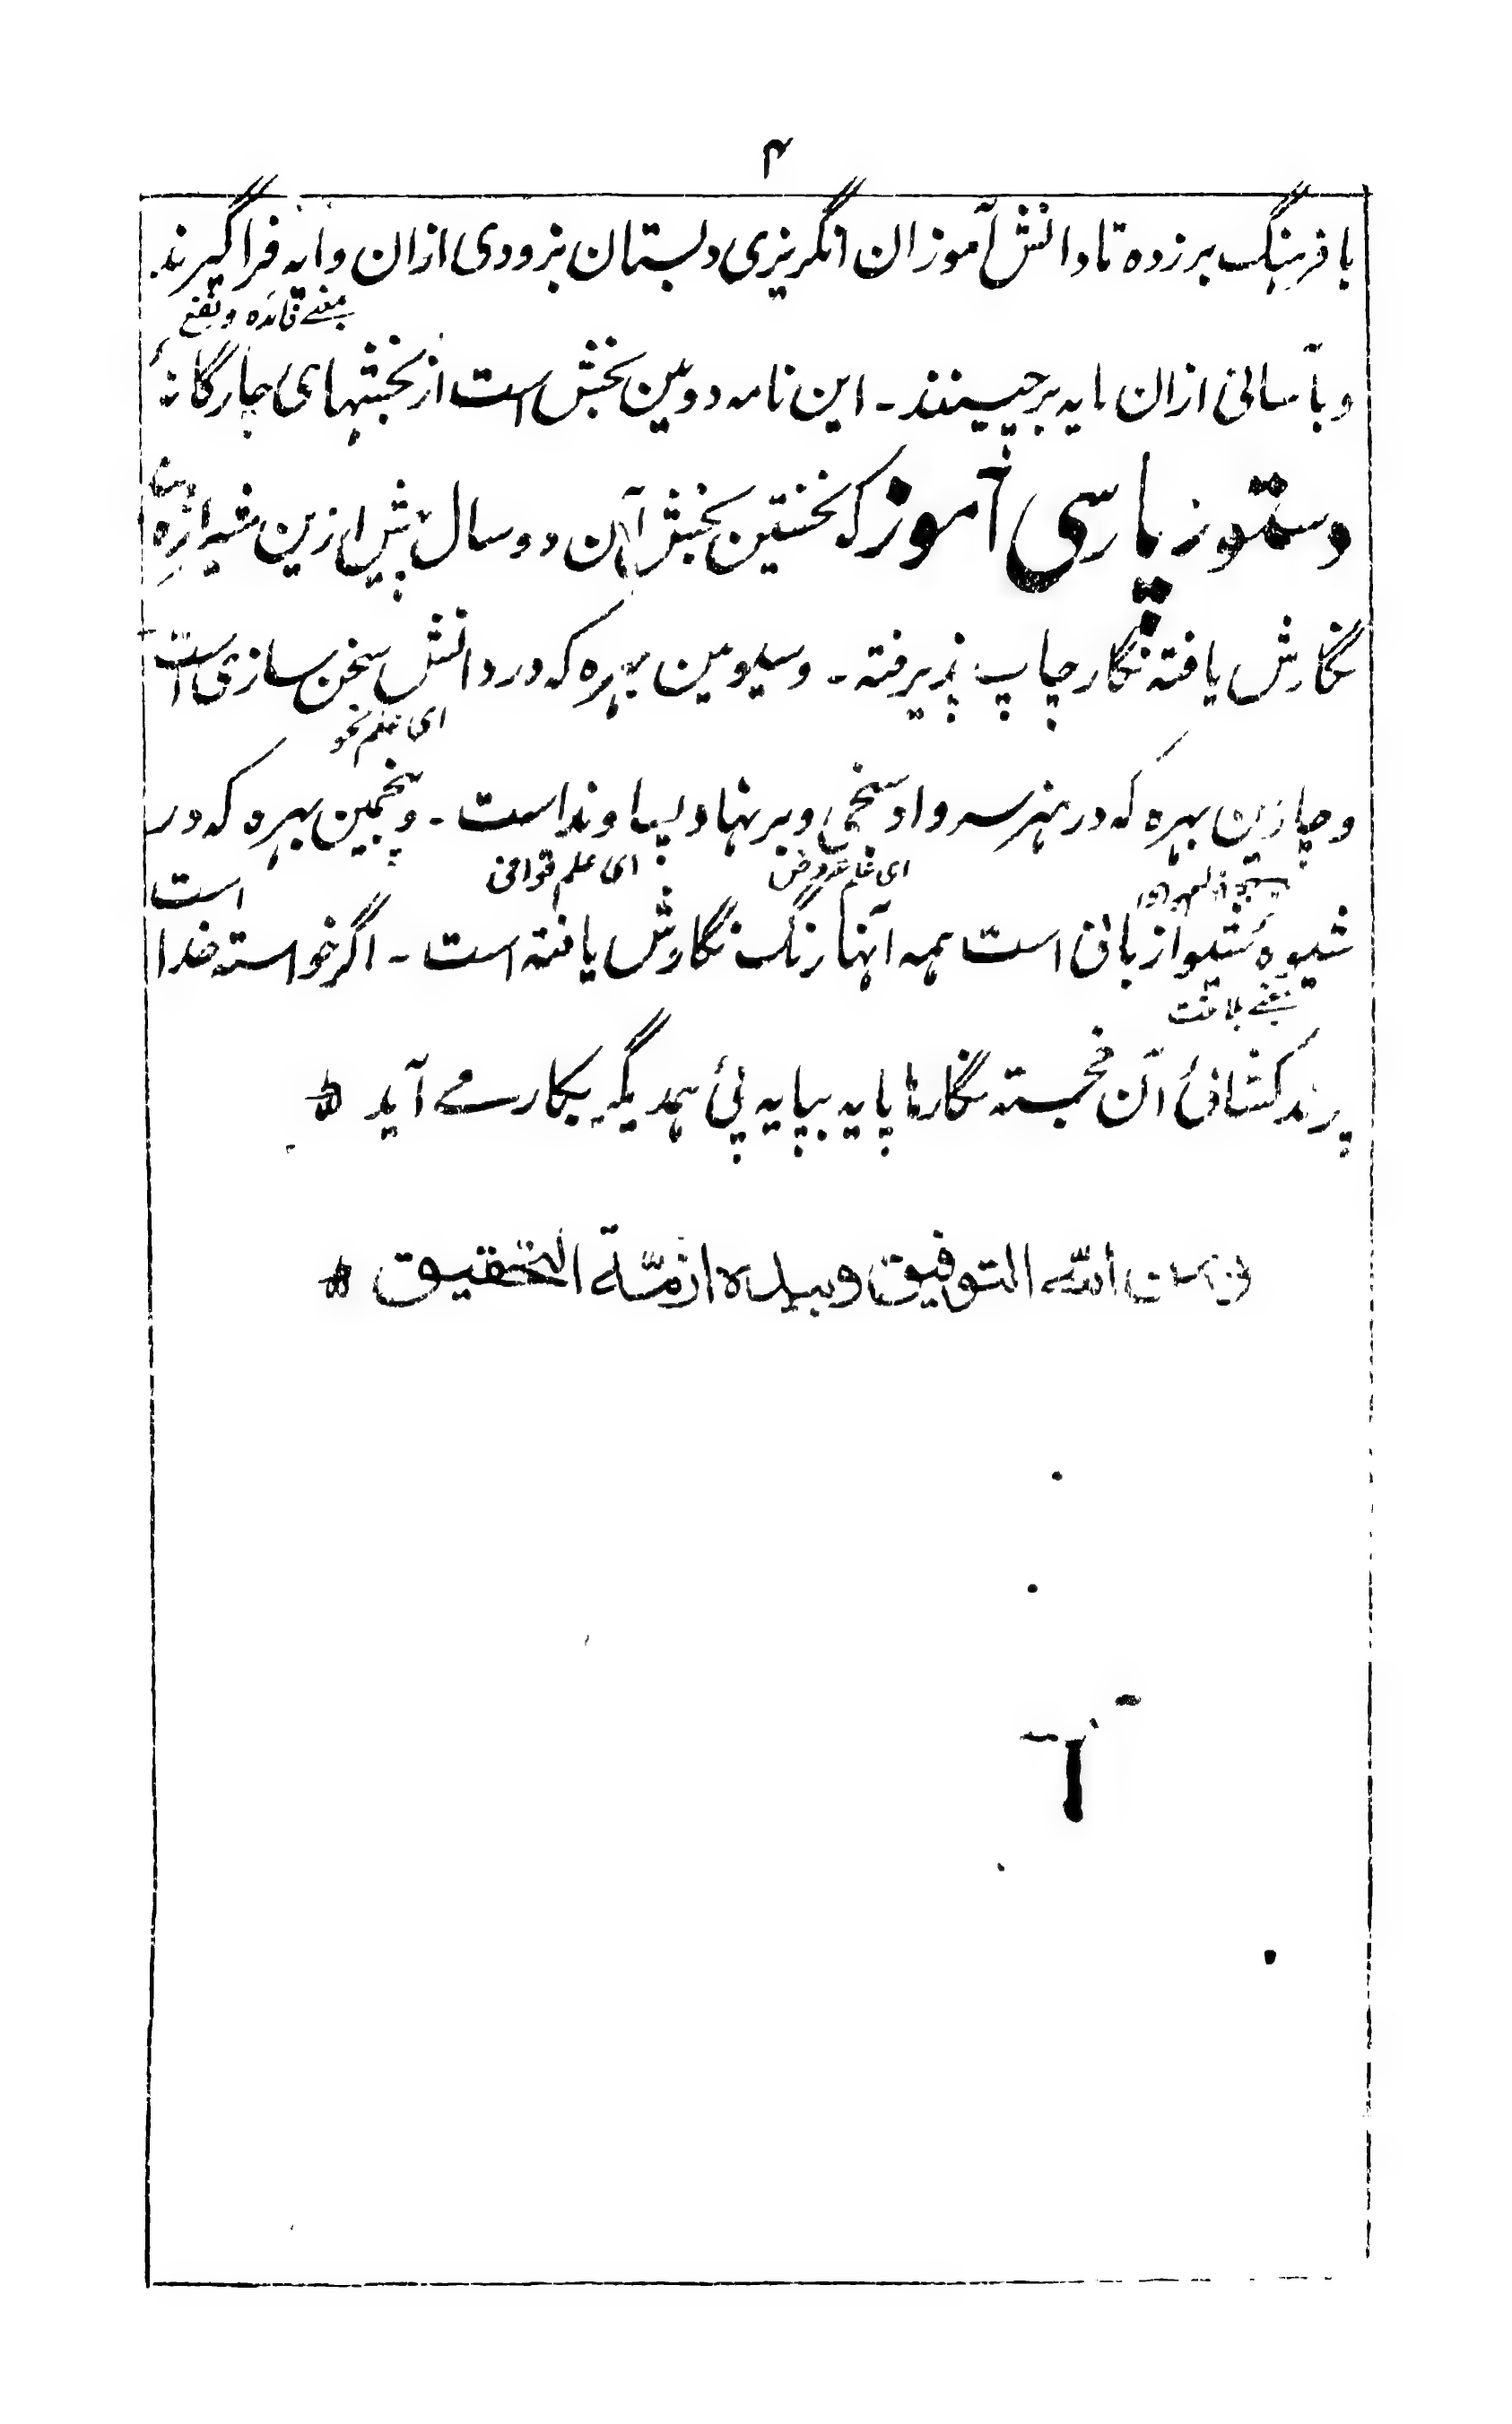 ۴
با فرہنگ برزده تا دانش آموزان انگریزی دبستان بزودی ازان وایه فراگیرند
بمعنے فائده و نفع
و بآسانی ازان مایه برچینند ـ این نامه دومین بخش است از بخشہای چارگانۂ
دستور پارسی آموز که نخستین بخش آن دو سال پیش ازین شیرازهٔ
نگارش یافته نگار چاپ پذیرفته ـ و سیومین بہره که در دانش سخن سازی است
ای علم نحو
و چارمین بہره که در ہنر سرواد سنجی و بر نہاد پساوند است ـ و پنجمین بہره که در
ای علم عروض ای علم قوافی
شیوهٔ شیوا زبانی است ہمه آنہا رنگ نگارش یافته است ـ اگر خواسته خدا است
بمعنے بلاغت
پرند کشائی آن خجسته نگارہا پایه بپایه پئی ہمدیگر بکار مے آید
و من اللّٰه التوفیق وبیده ازمّة التحقیق